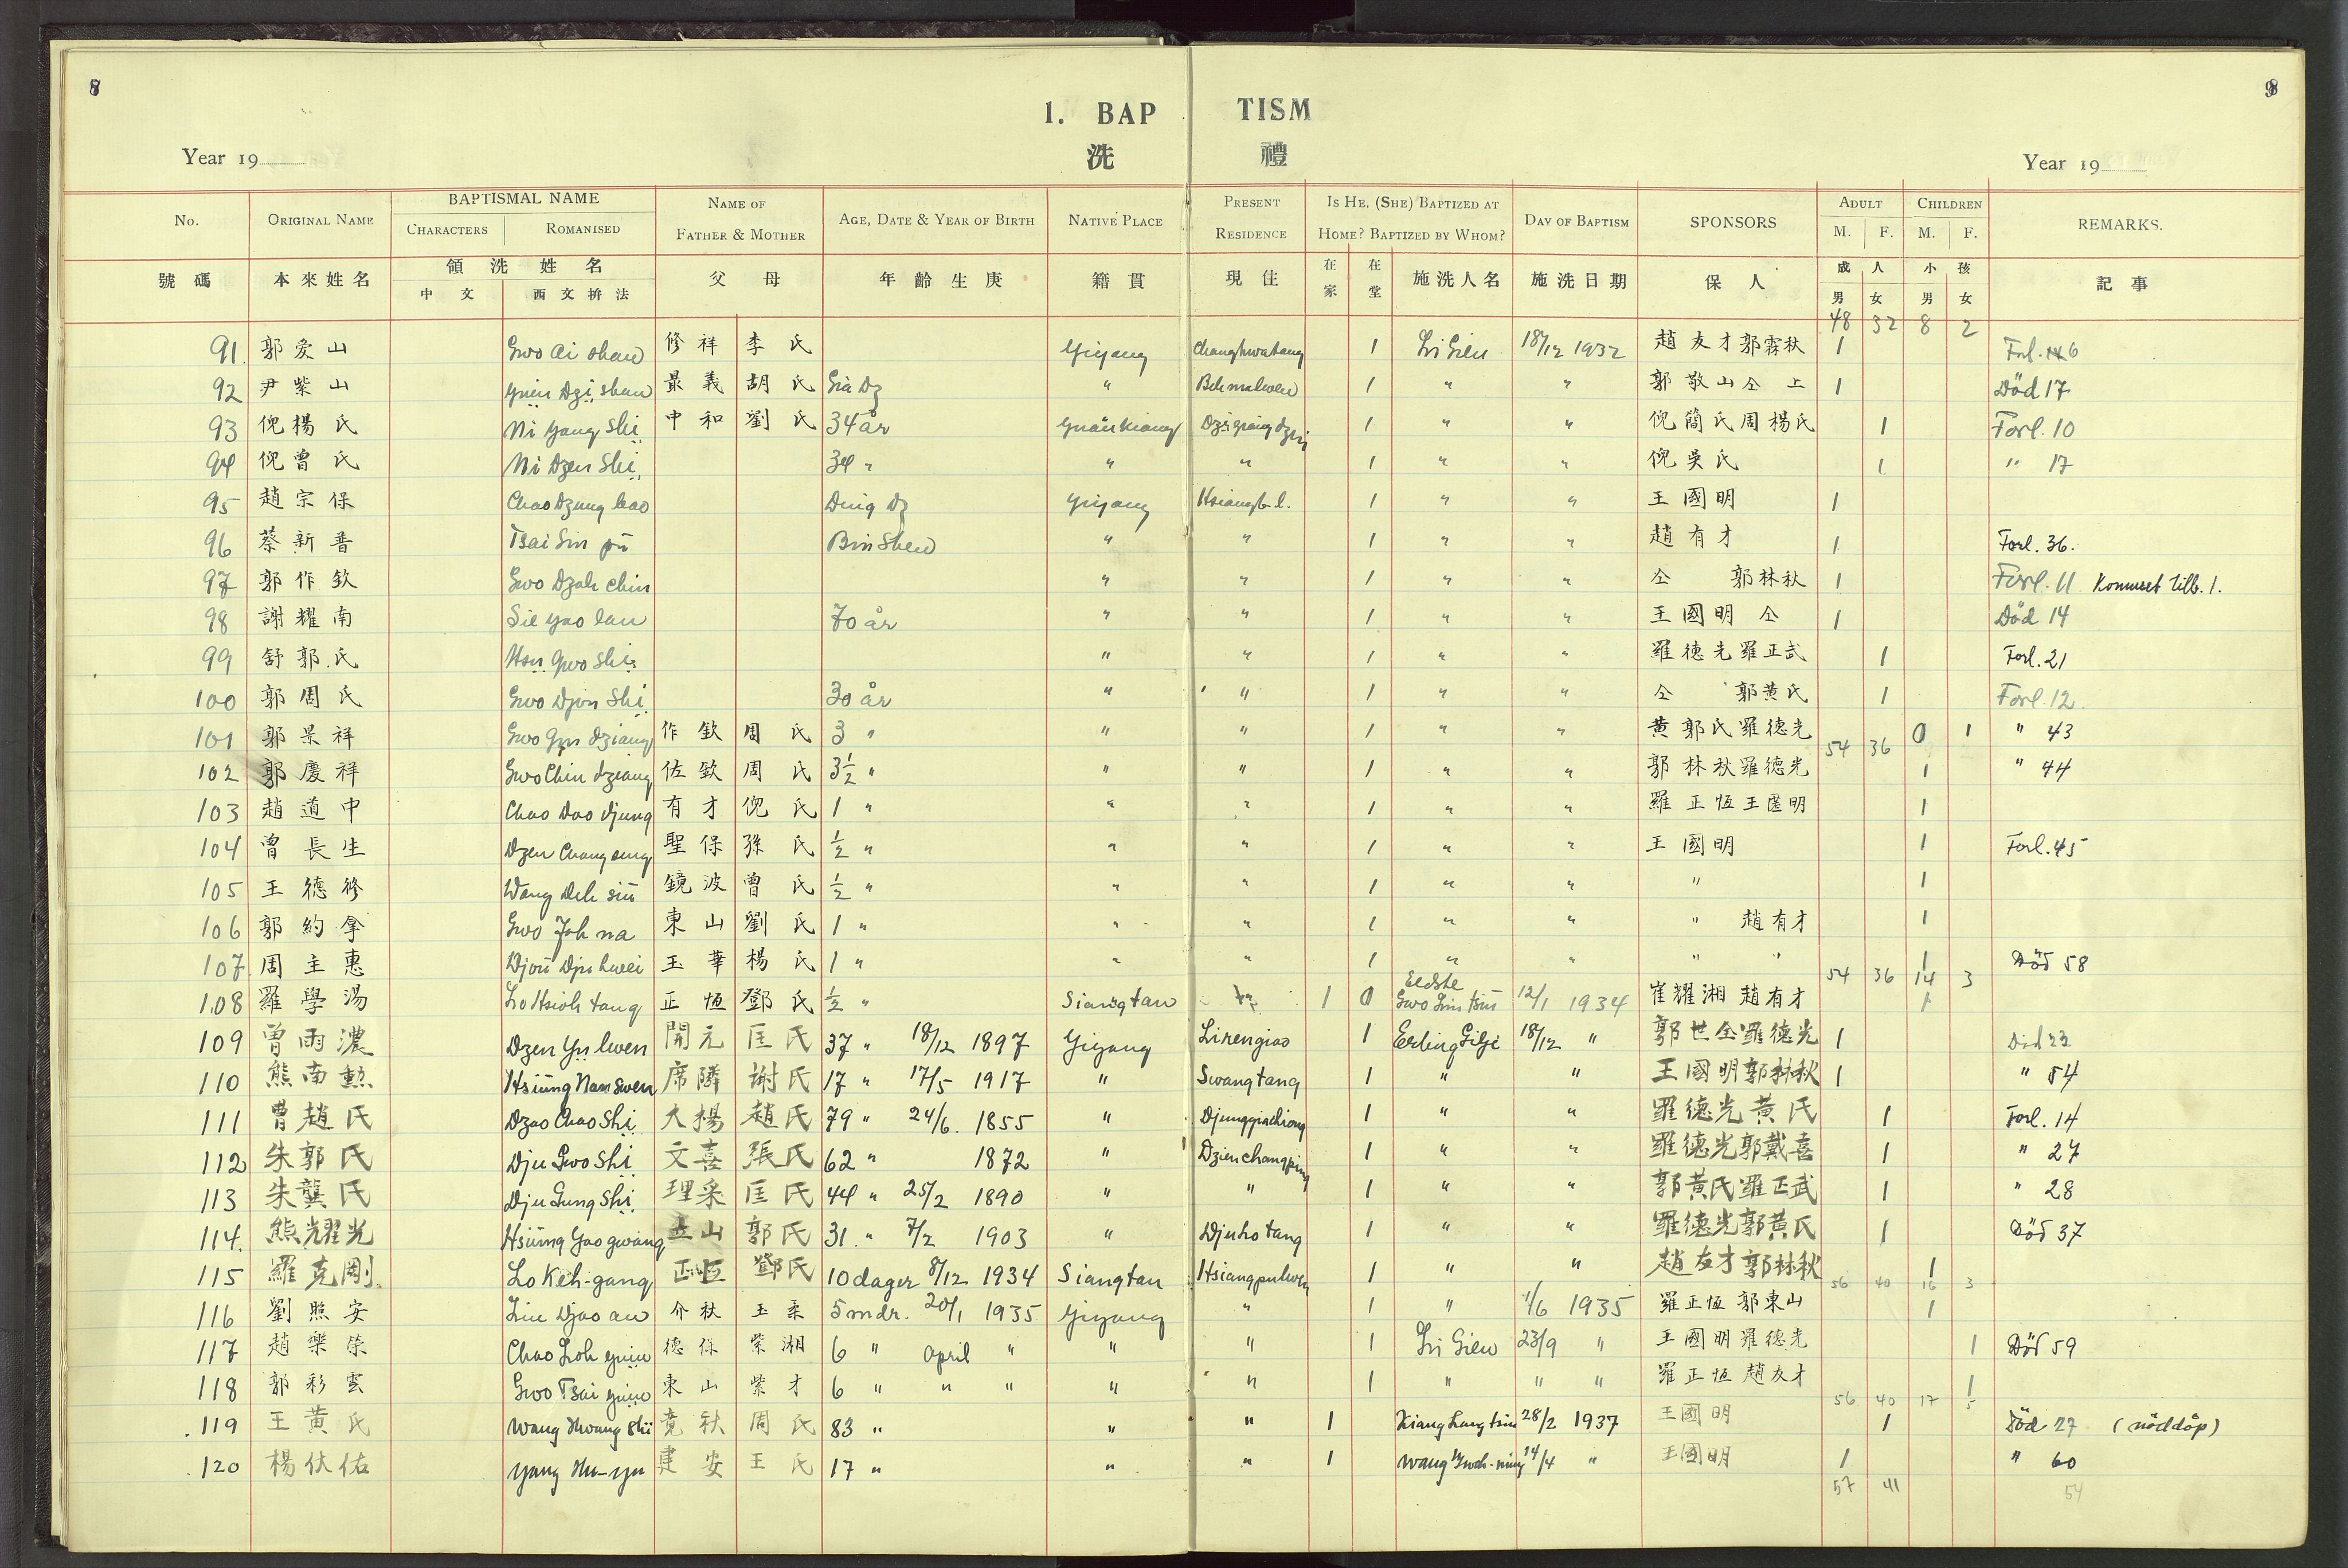 8 9
1. BAPTISM
洗 禮
Year 19 Year 19
No. ORIGINAL NAME BAPTISMAL NAME CHARACTERS ROMANISED NAME OF FATHER & MOTHER AGE, DATE & YEAR OF BIRTH NATIVE PLACE PRESENT RESIDENCE IS HE, (SHE) BAPTIZED AT HOME? BAPTIZED BY WHOM? DAY OF BAPTISM SPONSORS ADULT M. F. CHILDREN M. F. REMARKS.
號碼 本來姓名 領洗姓名 中文 西文拚法 父母 年齡生庚 籍貫 現住 在家 在堂 施洗人名 施洗日期 保人 成人 男 女 小孩 男 女 記事
48 32 8 2
91. 郭爱山 Gwo Ai shan 修祥 李氏 Yiyang Changhwatang 1 Li Gien 18/12 1932 趙友才 郭霖秋 1 Forl. 6
92 尹紫山 Yuin Dzi shan 最義 胡氏 Gia Dz " 1 " " 郭敬山 仝上 1 Död 17
93 倪楊氏 Ni Yang Shi 中和 劉氏 34 år Yuänkiang 1 " " 倪簡氏 周楊氏 1 Forl. 10
94 倪曾氏 Ni Dzen Shi 34 " " " 1 " " 倪吳氏 1 " 17
95 趙宗保 Chao Dzung bao Ding Dz Yiyang 1 " " 王國明 1
96 蔡新普 Tsai Sin pu Bin Shen " " 1 " " 趙有才 1 Forl. 36.
97 郭作欽 Gwo Dzoh Chin " " 1 " " 仝 郭林秋 1 Forl. 11 Kommet tilb. 1.
98 謝耀南 Sie Yao lan 70 år " " 1 " " 王國明 仝 1 Död 14
99 舒郭氏 Hsu Gwo Shi " " 1 " " 羅德光 羅正武 1 Forl. 21
100 郭周氏 Gwo Djou Shi 30 år " " 1 " " 仝 郭黄氏 1 Forl. 12
101 郭景祥 Gwo Gin dziang 作欽 周氏 3 " " " 1 " " 黄郭氏 羅德光 54 36 0 1 " 43
102 郭慶祥 Gwo Chin dziang 佐欽 周氏 3½ " " " 1 " " 郭林秋 羅德光 1 " 44
103 趙道中 Chao Dao djung 有才 倪氏 1 " " " 1 " " 羅正恆 王國明 1
104 曾長生 Dzen Chang seng 聖保 孫氏 ½ " " " 1 " " 王國明 1 Forl. 45
105 王德修 Wang Deh siu 鏡波 曾氏 ½ " " " 1 " " " 1
106 郭約拿 Gwo Joh na 東山 劉氏 1 " " " 1 " " " 趙有才 1
107 周主惠 Djou Dju hwei 玉華 楊氏 1 " " " 1 " " " " 1 Död 58
54 36 14 3
108 羅學湯 Lo Hsioh tang 正恆 鄧氏 ½ " Siangtan " 1 0 Eldste Gwo Lin tsiu 12/1 1934 崔耀湘 趙有才 1
109 曾雨濃 Dzen Yu lwen 開元 匡氏 37 " 18/12 1897 Yiyang Lirengiao 1 Erling Gilje 18/12 " 郭世全 羅德光 1 Död 22
110 熊南勲 Hsiung Nan swen 席隣 谢氏 17 " 17/5 1917 " Swangtang 1 " " 王國明 郭林秋 1 " 54
111 曹趙氏 Dzao Chao Shi 大楊 趙氏 79 " 24/6. 1855 " 1 " " 羅德光 黄氏 1 Forl. 14
112 朱郭氏 Dju Gwo Shi 文喜 張氏 62 " 1872 " Dzienchangping 1 " " 羅德光 郭戴喜 1 " 27
113 朱龔氏 Dju Gung Shi 理采 匡氏 44 " 25/2 1890 " " 1 " " 郭黄氏 羅正武 1 " 28
114. 熊耀光 Hsiung Yao gwang 山 郭氏 31. " 7/2 1903 " Djuhotang 1 " " 羅德光 郭黄氏 1 Död 37
115 羅克剛 Lo Keh-gang 正恆 鄧氏 10 dager 8/12 1934 Siangtan Hsiangpulwen 1 " " 趙友才 郭林秋 1
56 40 16 3
116 劉照安 Liu Djao an 介秋 玉柔 5 mdr. 20/1 1935 Yiyang " 1 " 1/6 1935 羅正恆 郭東山 1
117 趙樂榮 Chao Loh yuin 德保 紫湘 6 " april " " " 1 Li Gien 23/9 " 王國明 羅德光 1 Död 59
118 郭彩雲 Gwo Tsai yuin 東山 紫才 6 " " " " " 1 " " " 羅正恆 趙友才 1
56 40 17 5
119 王黄氏 Wang Hwang Shi 竟秋 周氏 83 " " " 1 28/2 1937 王國明 1 Död 27 (nöddåp)
120 楊伏佑 Yang Hu-yu 建安 王氏 17 " " " 1 14/4 " 王國明 1 " 60
57 41 54